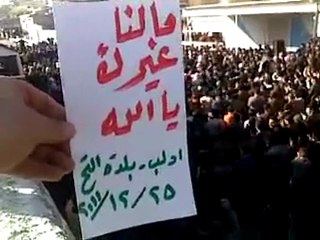 مالنا
غيرك
يا الله
ادلب - بلدة التح
٢٠١١/١٢/٢٥